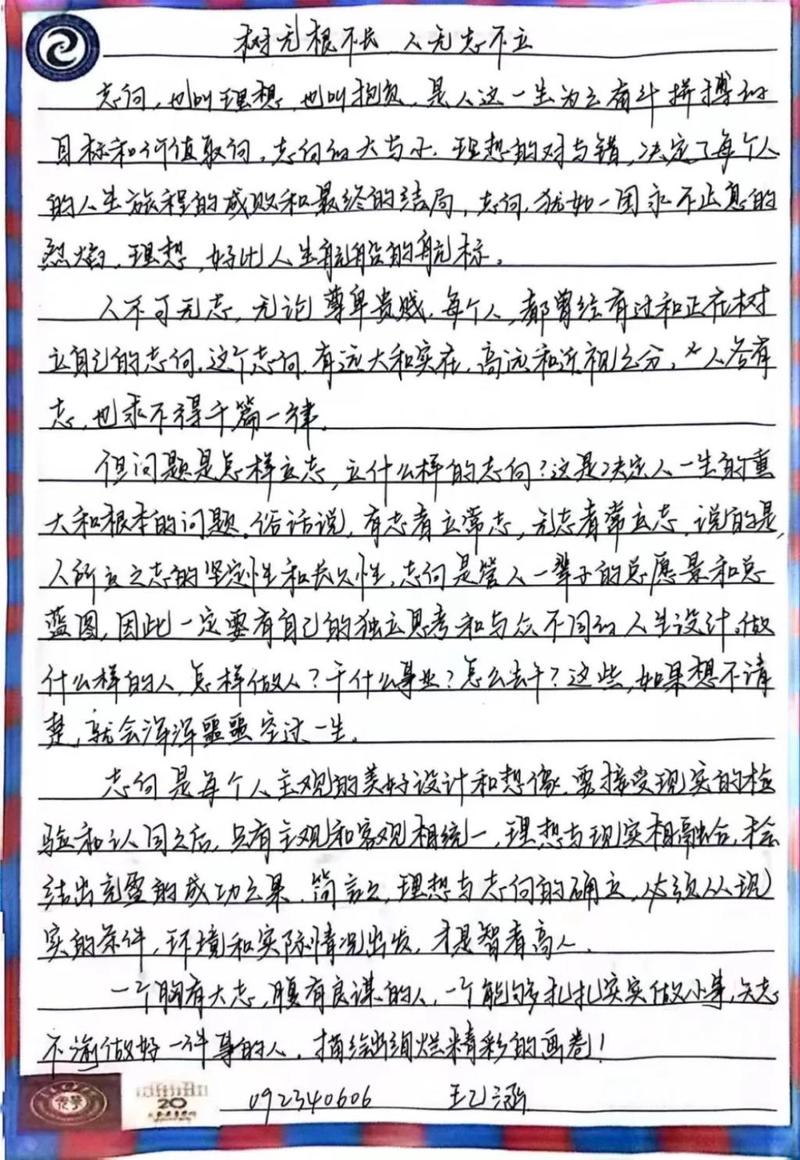 树无根不长 人无志不立
志向，也叫理想，也叫抱负，是人这一生为之奋斗拼搏的
目标和价值取向。志向的大与小，理想的对与错，决定了每个人
的人生旅程的成败和最终的结局，志向，犹如一团永不止息的
烈焰，理想，好比人生航船的航标。
人不可无志，无论尊卑贵贱，每个人，都曾经有过和正在树
立自己的志向，这个志向，有远大和实在，高远和近视之分，人各有
志，也求不得千篇一律。
但问题是怎样立志，立什么样的志向？这是决定人一生的重
大和根本的问题。俗话说，有志者立常志，无志者常立志，说的是，
人所立之志的坚定性和长久性，志向是管人一辈子的总愿景和总
蓝图，因此一定要有自己的独立思考和与众不同的人生设计，做
什么样的人，怎样做人？干什么事业？怎么去干？这些，如果想不清
楚，就会浑浑噩噩空过一生。
志向是每个人主观的美好设计和想像，要接受现实的检
验和认同之后，只有主观和客观相统一，理想与现实相融合，才会
结出充盈的成功之果，简言之，理想与志向的确立，必须从现
实的条件，环境和实际情况出发，才是智者高人。
一个胸有大志，腹有良谋的人，一个能够扎扎实实做小事，矢志
不渝做好一件事的人，描绘出绚烂精彩的画卷！
20
092340606 王乙涵